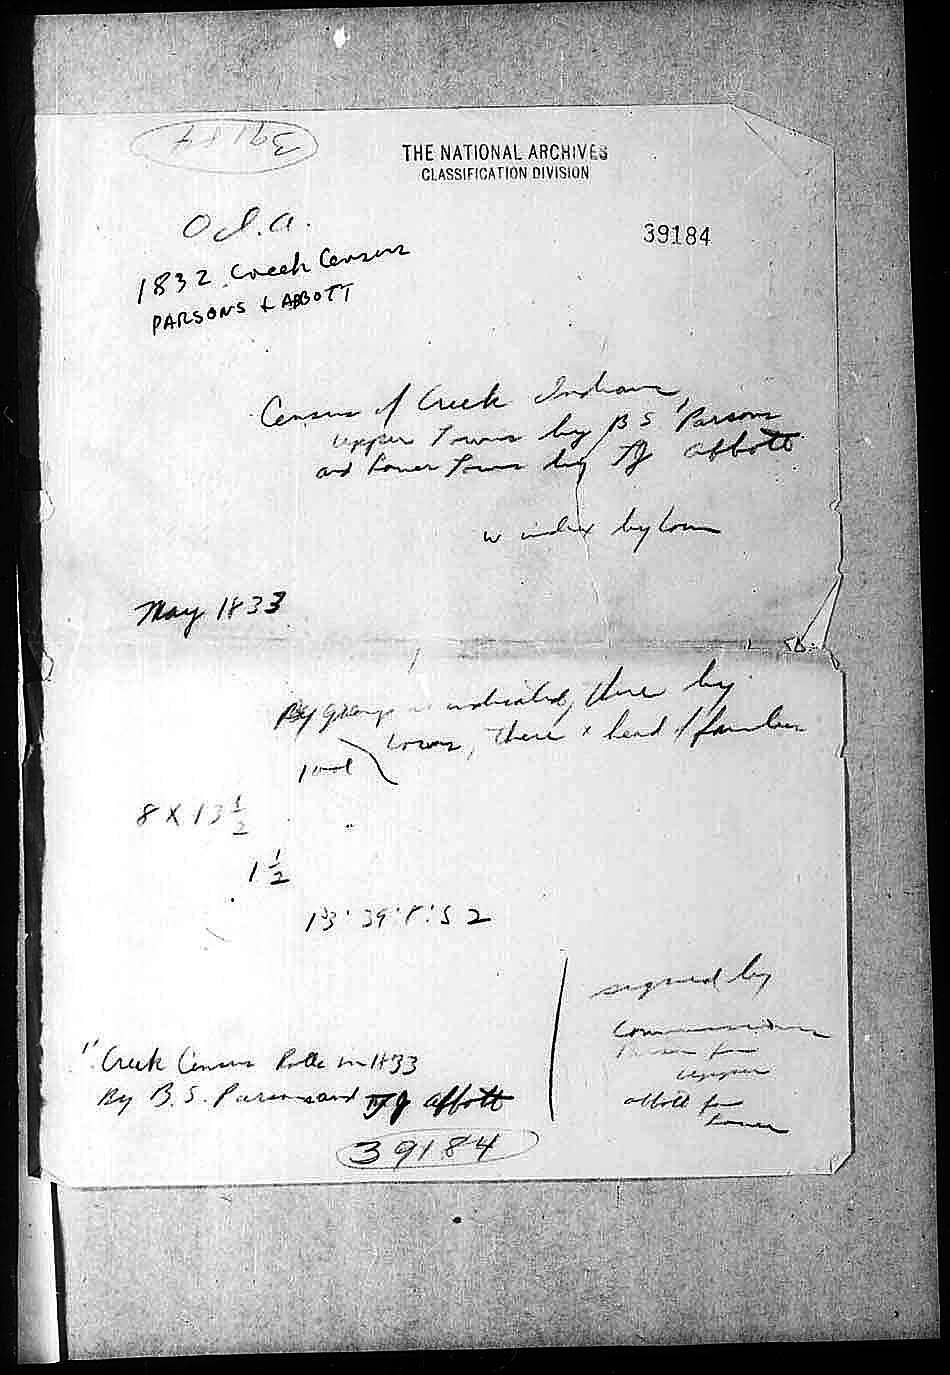 39184
THE NATIONAL ARCHIVES
CLASSIFICATION DIVISION
39184
O.I.A.
1832 Creek Census
PARSONS & ABBOTT
Census of Creek Indians,
upper Towns by B S Parsons
and Lower Towns by TJ Abbott
w index by town
May 1833
By group indicated, there by
towns, there x head of families
8 X 13 1/2
1 1/2
signed by
Commissioners
for
upper
Abbott for
Lower
"Creek Census Rolls in 1833
By B. S. Parsons and TJ Abbott
39184